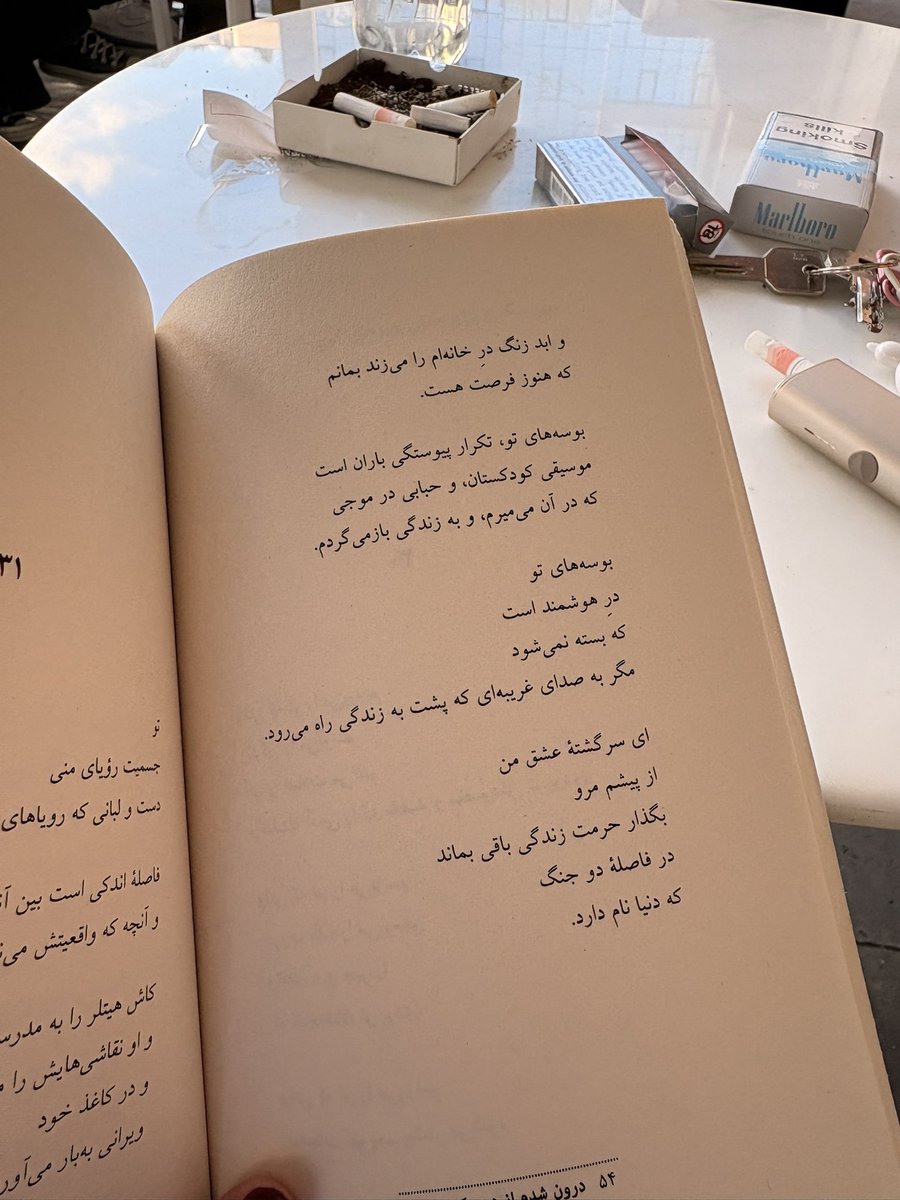 و ابد زنگ درِ خانه‌ام را می‌زند بمانم
که هنوز فرصت هست.
بوسه‌های تو، تکرار پیوستگی باران است
موسیقی کودکستان، و حبابی در موجی
که در آن می‌میرم، و به زندگی بازمی‌گردم.
بوسه‌های تو
درِ هوشمند است
که بسته نمی‌شود
مگر به صدای غریبه‌ای که پشت به زندگی راه می‌رود.
ای سرگشتهٔ عشق من
از پیشم مرو
بگذار حرمت زندگی باقی بماند
در فاصلهٔ دو جنگ
که دنیا نام دارد.
۵۴ درون شدم از
۳۱
تو
جسمیت رؤیای منی
دست و لبانی که رویاهای
فاصلهٔ اندکی است بین
و آنچه که واقعیتش
کاش هیتلر را به
و او نقاشی‌هایش را
و در کاغذ خود
ویرانی به‌بار
Smoking
kills
Marlboro
Marlboro
touch one
18